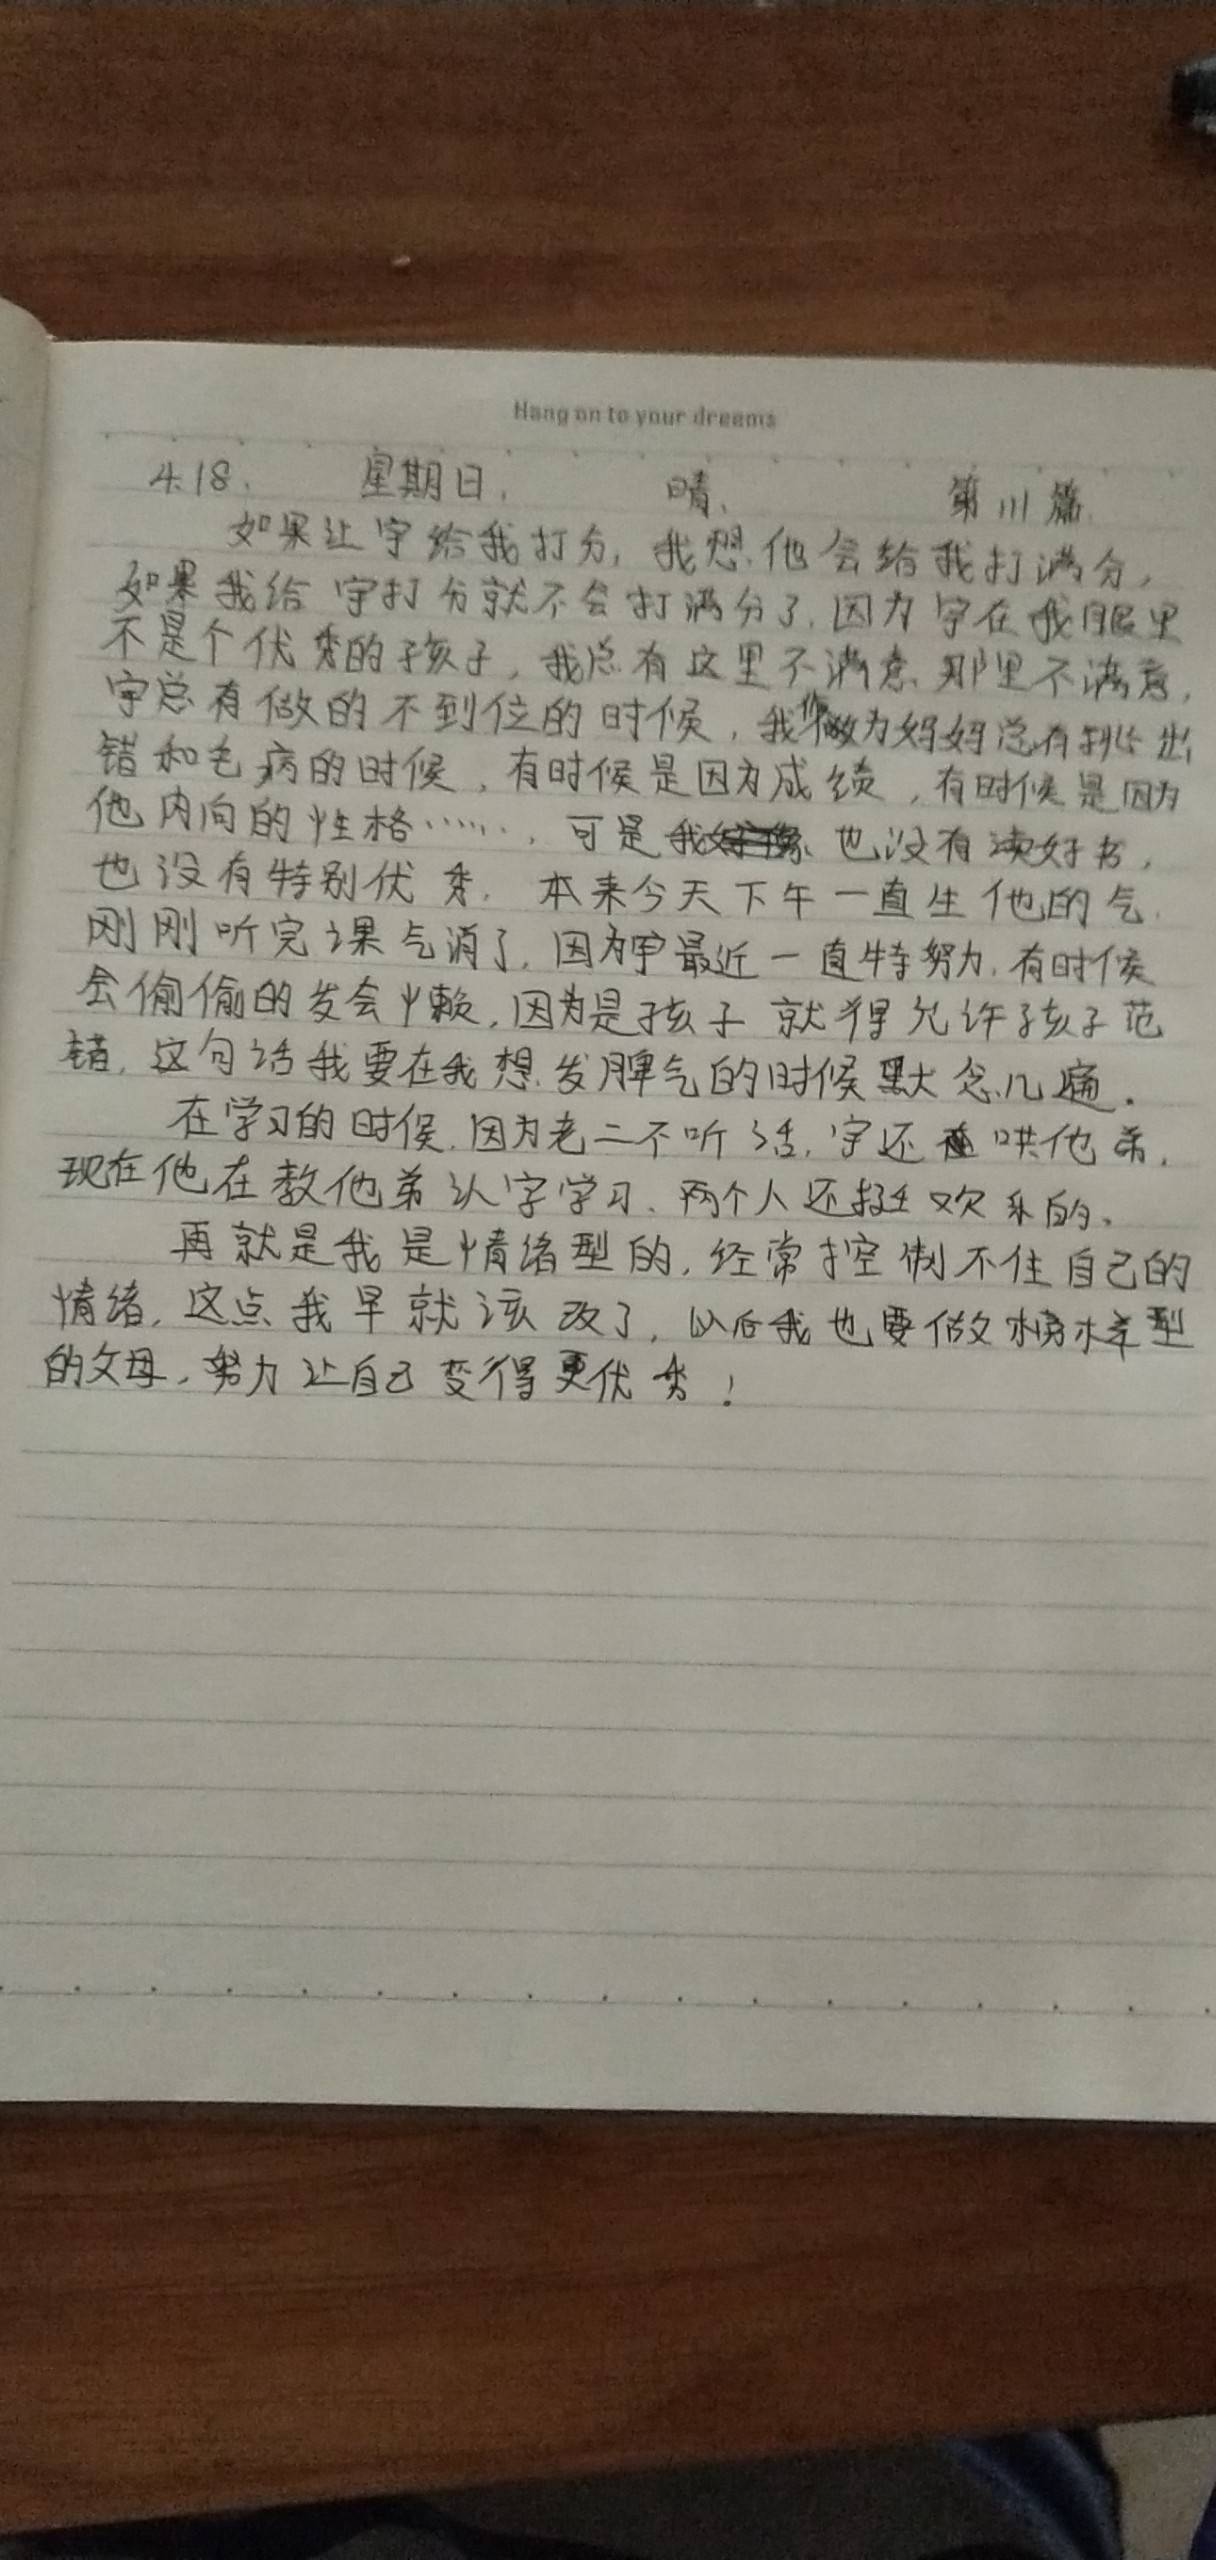 Hang on to your dreams
4.18. 星期日. 晴. 第111篇
如果让宇给我打分,我想他会给我打满分,
如果我给宇打分就不会打满分了.因为宇在我眼里
不是个优秀的孩子,我总有这里不满意.那里不满意,
宇总有做的不到位的时候,我作做为妈妈总有挑出
错和毛病的时候,有时候是因为成绩,有时候是因为
他内向的性格……,可是 也没有读好书,
也没有特别优秀.本来今天下午一直生他的气.
刚刚听完课气消了.因为宇最近一直特努力.有时候
会偷偷的发会懒,因为是孩子就得允许孩子范
错,这句话我要在我想发脾气的时候默念几遍.
在学习的时候.因为老二不听话,宇还 哄他弟,
现在他在教他弟认字学习.两个人还挺欢乐的。
再就是我是情绪型的,经常控制不住自己的
情绪,这点我早就该改了,以后我也要做榜样型
的父母,努力让自己变得更优秀!